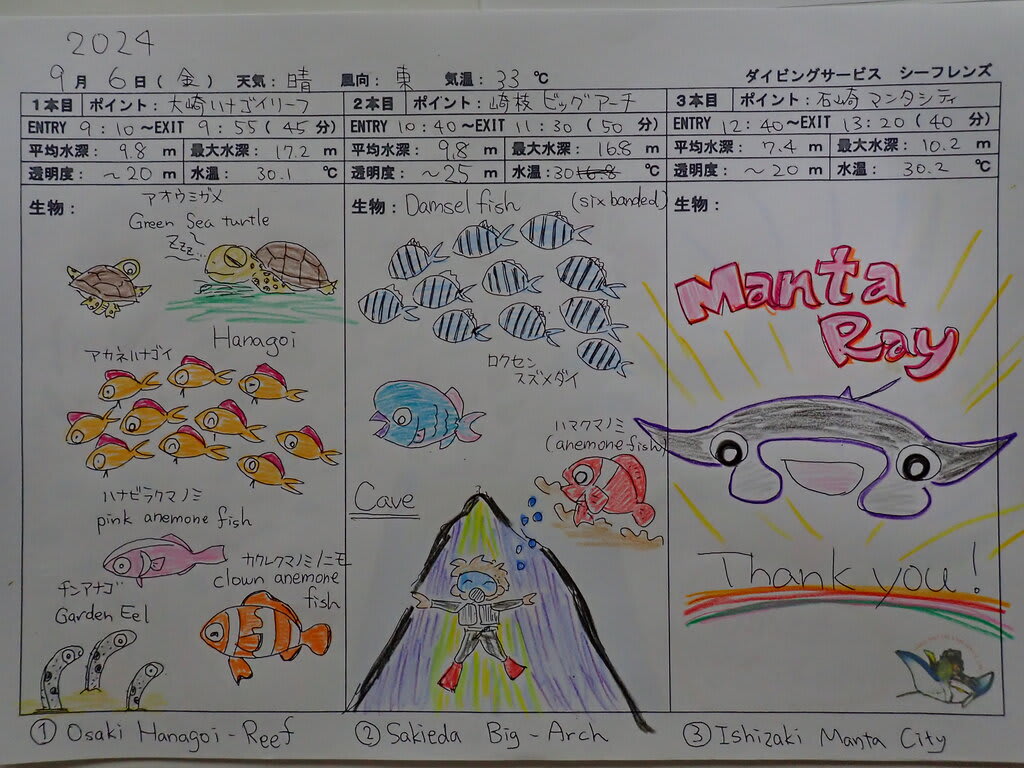 2024
9月 6日(金) 天気:晴 風向:東 気温:33℃ ダイビングサービス シーフレンズ
1本目 ポイント:大崎ハナゴイリーフ
ENTRY 9:10~EXIT 9:55(45分)
平均水深: 9.8 m 最大水深: 17.2 m
透明度: ~20 m 水温: 30.1 ℃
生物:
アオウミガメ
Green Sea turtle
Zzz...
Hanagoi
アカネハナゴイ
ハナビラクマノミ
pink anemone fish
カクレクマノミ/ニモ
clown anemone
fish
チンアナゴ
Garden Eel
① Osaki Hanagoi-Reef
2本目 ポイント:崎枝 ビッグアーチ
ENTRY 10:40~EXIT 11:30(50分)
平均水深: 9.8 m 最大水深: 16.8 m
透明度: ~25 m 水温:30 16.8 ℃
生物: Damsel fish (six banded)
ロクセン
スズメダイ
ハマクマノミ
(anemone fish)
Cave
② Sakieda Big-Arch
3本目 ポイント:石崎 マンタシティ
ENTRY 12:40~EXIT 13:20(40分)
平均水深: 7.4 m 最大水深: 10.2 m
透明度: ~20 m 水温: 30.2 ℃
生物:
Manta
Ray
Thank you!
③ Ishizaki Manta City